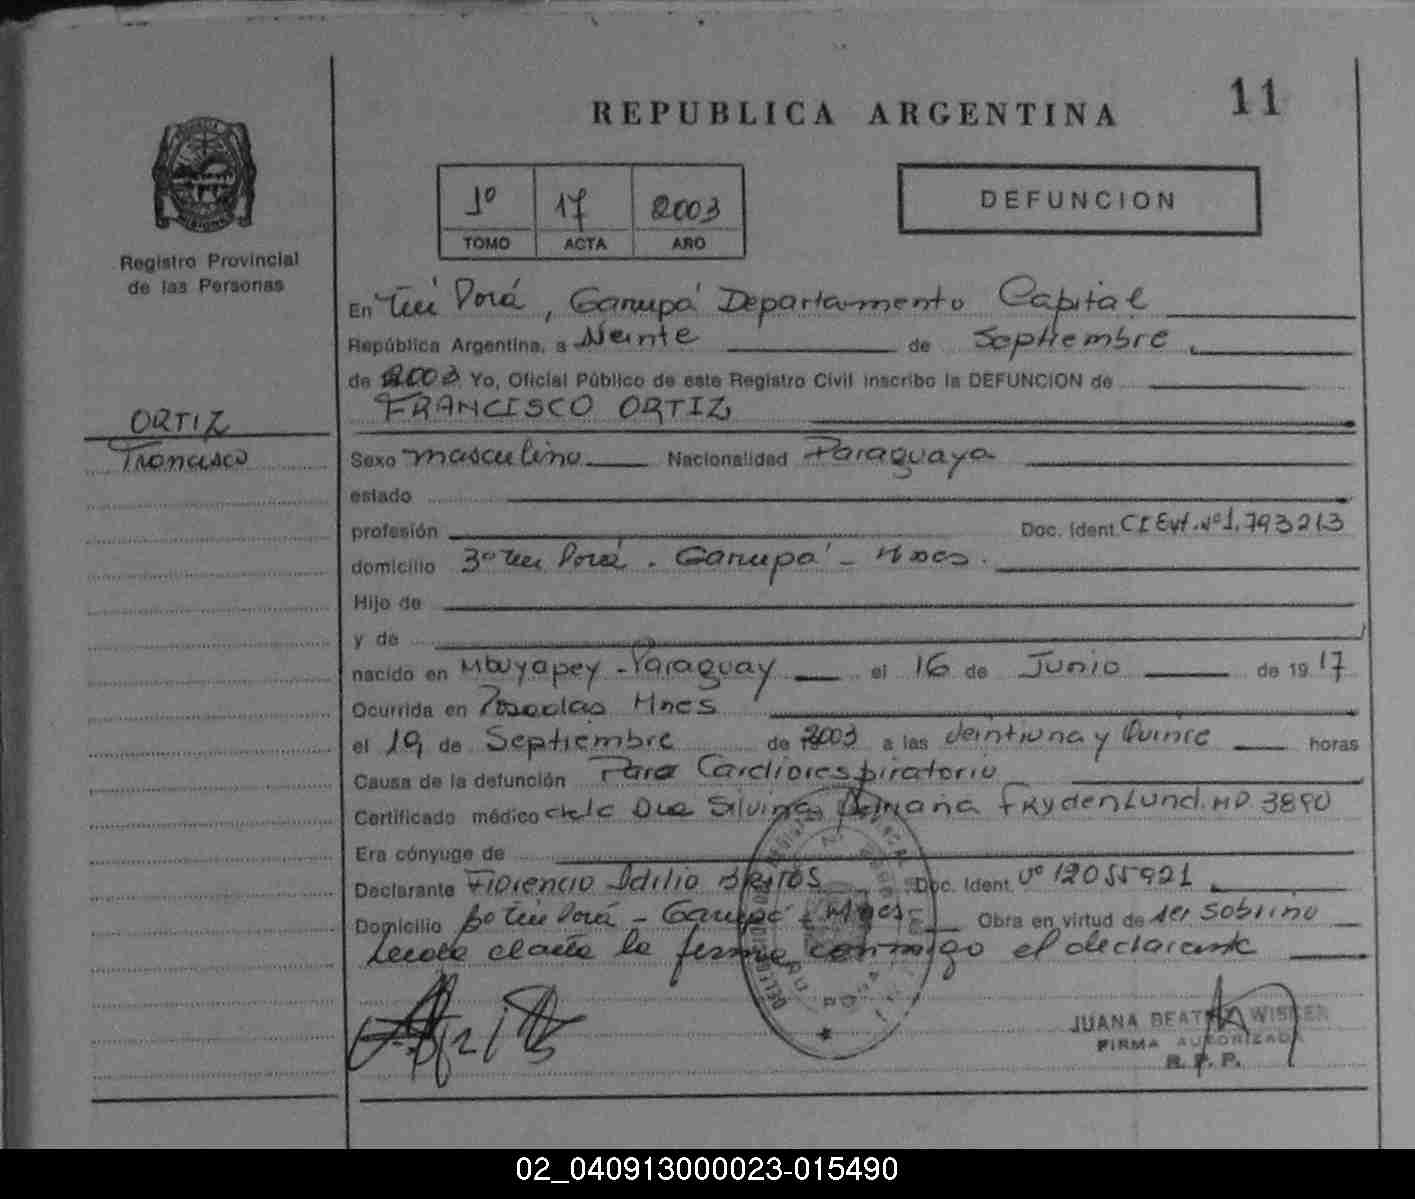 REPUBLICA ARGENTINA
11
1º 17 2003
TOMO ACTA AÑO
DEFUNCION
Registro Provincial
de las Personas
En Tuí Porá, Garupá Departamento Capital
República Argentina, a Veinte de Septiembre
de 2003 Yo, Oficial Público de este Registro Civil inscribo la DEFUNCION de
FRANCISCO ORTIZ
ORTIZ
Francisco
Sexo masculino Nacionalidad Paraguaya
estado
profesión Doc. Ident. CI Ext. Nº 1.793213
domicilio Bº Tuí Porá - Garupá - Mnes.
Hijo de
y de
nacido en Mbuyapey - Paraguay el 16 de Junio de 1917
Ocurrida en Posadas Mnes
el 19 de Septiembre de 2003 a las Veintiuna y Quince horas
Causa de la defunción Paro Cardiorespiratorio
Certificado médico de la Dra Silvina Adriana Frydenlund. MP 3890
Era cónyuge de
Declarante Florencio Idilio BRITOS Doc. Ident. Nº 12055921
Domicilio Bº Tuí Porá - Garupá - Mnes Obra en virtud de ser sobrino
Leída el acta la firma conmigo el declarante
JUANA BEATRIZ
FIRMA AUTORIZADA
R. P. P.
02_040913000023-015490